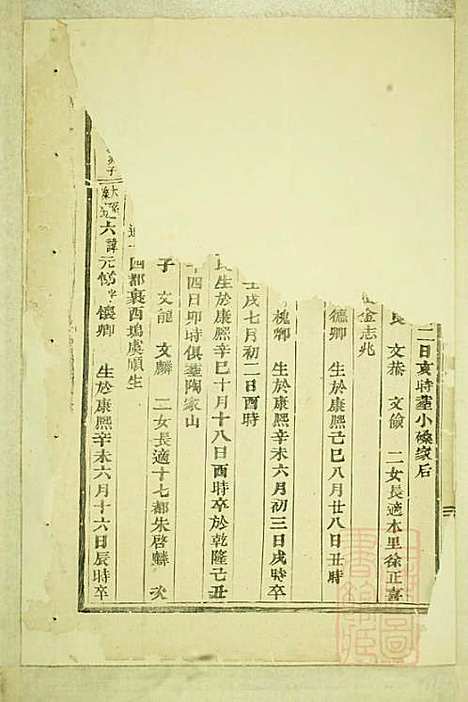 二日亥時葬小礤家后
良 文恭 文儉 二女長適本里徐正喜
金志兆
德卿 生於康熙己巳八月廿八日丑時
槐卿 生於康熙辛未六月初三日戌時卒
戌七月初二日酉時
生於康熙辛巳十月十八日酉時卒於乾隆己丑
十四日卯時俱葬陶家山
子 文龍 文麟 二女長適十七都朱啓 次
適十四都裏西塢虞順生
六 諱元 字懷卿 生於康熙辛未六月十六日辰時卒